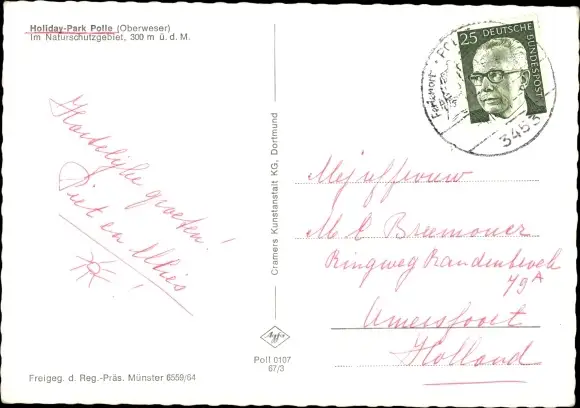 Holiday-Park Polle (Oberweser)
Im Naturschutzgebiet, 300 m ü. d. M.
Hartelijke groeten!
Piet en Mies
!
Cramers Kunstanstalt KG, Dortmund
Agfa
Poll 0107
67/3
Freigeg. d. Reg.-Präs. Münster 6559/64
25 DEUTSCHE
BUNDESPOST
3453
Mejuffrouw
M C Bremouer
Ringweg Randenbroek
79A
Amersfoort
Holland